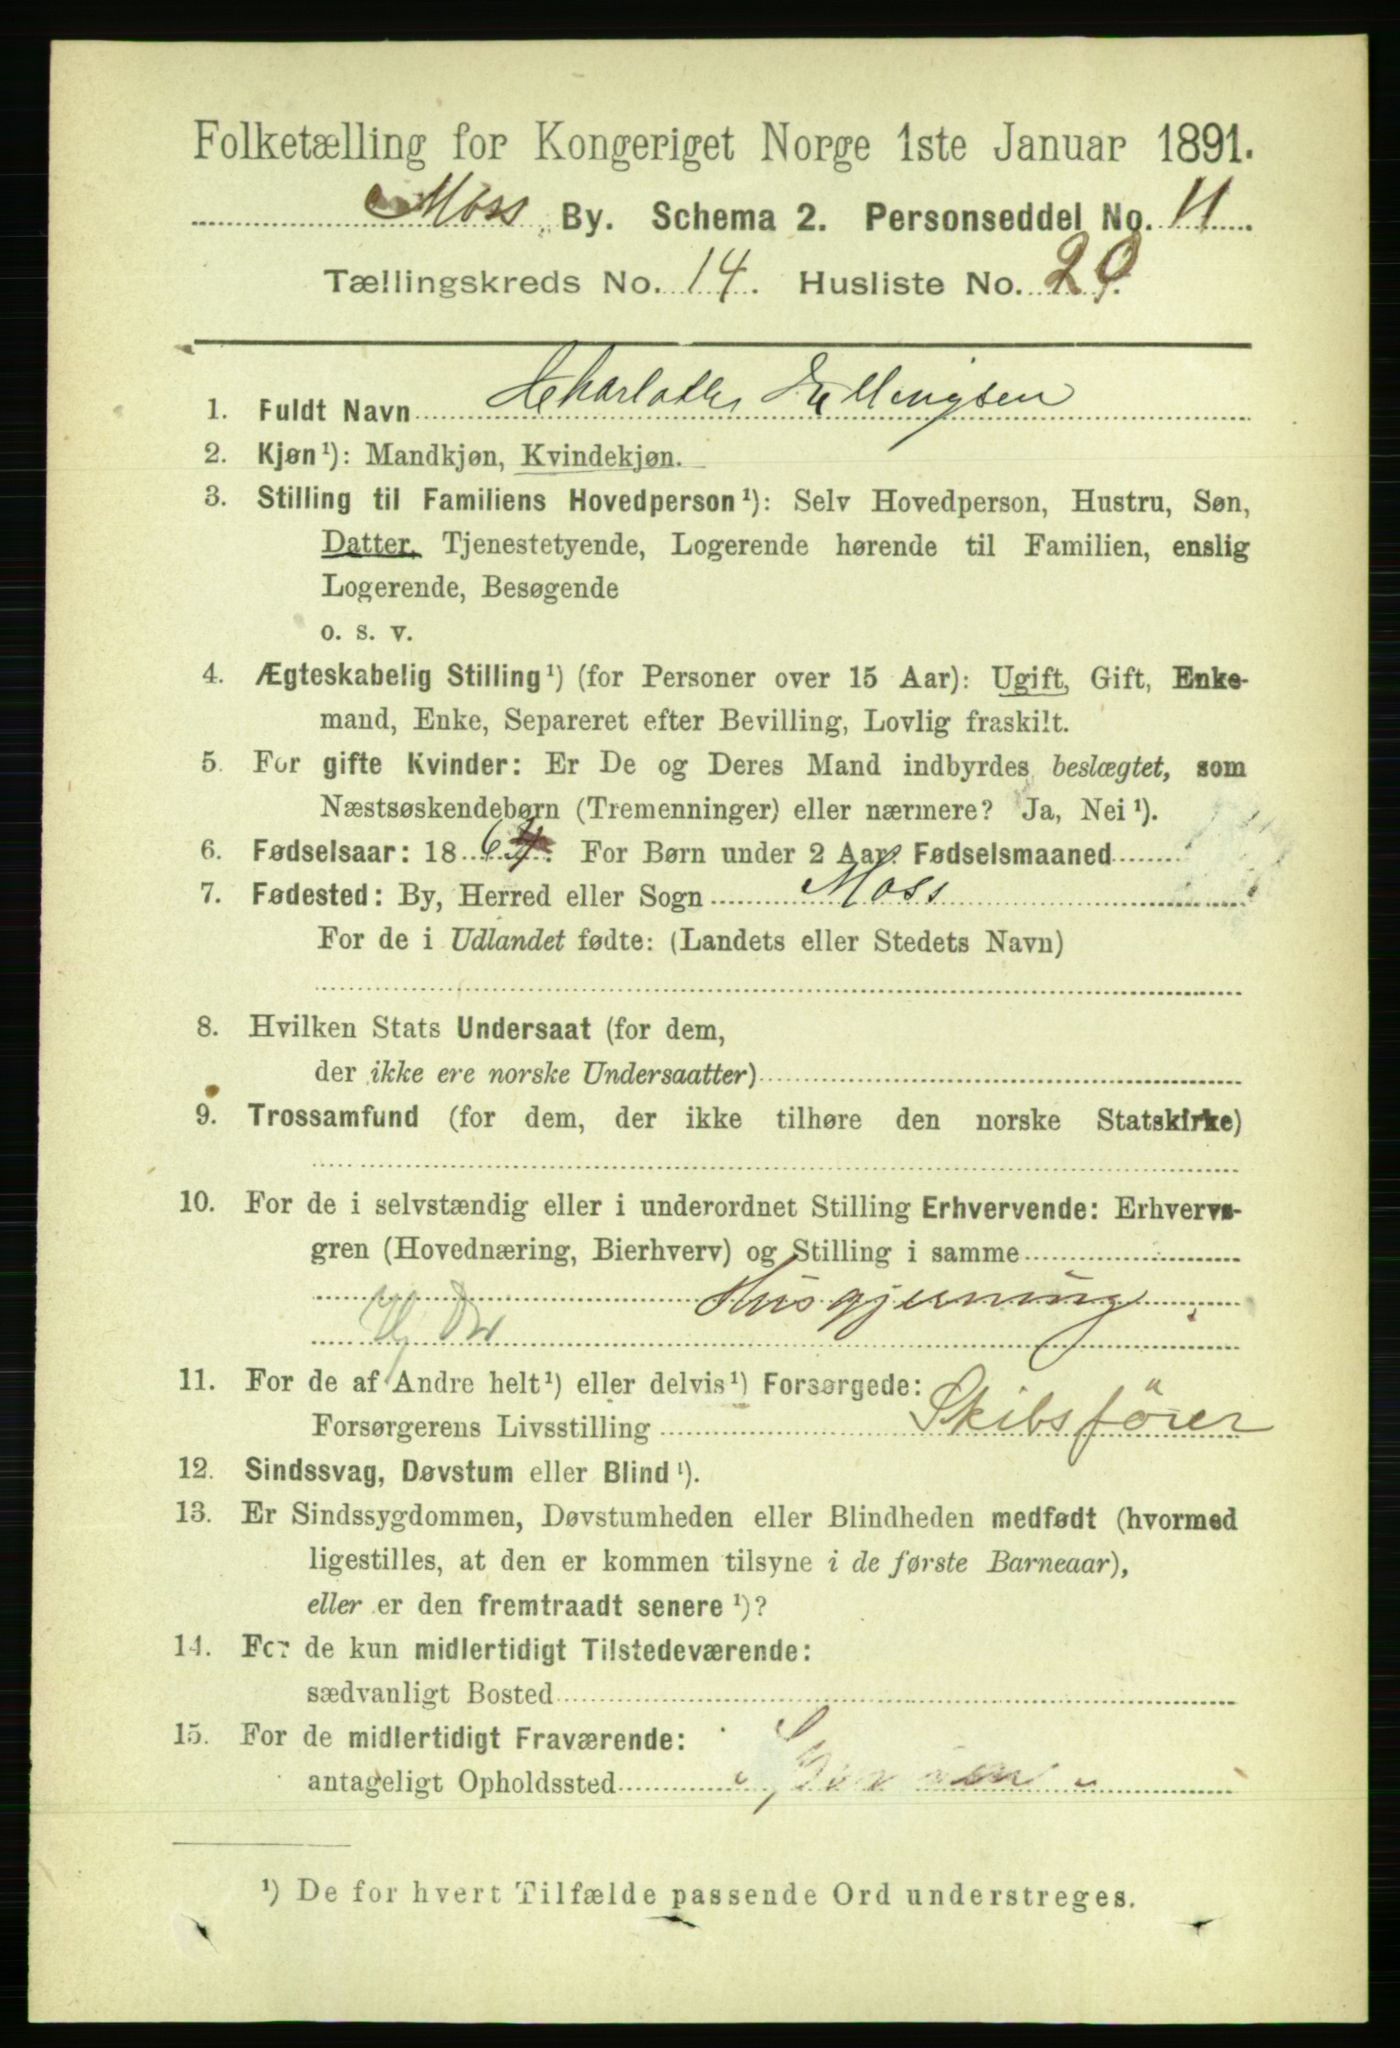 Folketælling for Kongeriget Norge 1ste Januar 1891.
Moss By. Schema 2. Personseddel No. 11
Tællingskreds No. 14. Husliste No. 29.
1. Fuldt Navn Charlotte Ellingsen
2. Kjøn¹): Mandkjøn, Kvindekjøn.
3. Stilling til Familiens Hovedperson¹): Selv Hovedperson, Hustru, Søn,
Datter, Tjenestetyende, Logerende hørende til Familien, enslig
Logerende, Besøgende
o. s. v.
4. Ægteskabelig Stilling¹) (for Personer over 15 Aar): Ugift, Gift, Enke-
mand, Enke, Separeret efter Bevilling, Lovlig fraskilt.
5. For gifte Kvinder: Er De og Deres Mand indbyrdes beslægtet, som
Næstsøskendebørn (Tremenninger) eller nærmere? Ja, Nei¹).
6. Fødselsaar: 1864. For Børn under 2 Aar: Fødselsmaaned
7. Fødested: By, Herred eller Sogn Moss
For de i Udlandet fødte: (Landets eller Stedets Navn)
8. Hvilken Stats Undersaat (for dem,
der ikke ere norske Undersaatter)
9. Trossamfund (for dem, der ikke tilhøre den norske Statskirke)
10. For de i selvstændig eller i underordnet Stilling Erhvervende: Erhvervs-
gren (Hovednæring, Bierhverv) og Stilling i samme
Husgjerning
11. For de af Andre helt¹) eller delvis¹) Forsørgede:
Forsørgerens Livsstilling Skibsförer
12. Sindssvag, Døvstum eller Blind¹).
13. Er Sindssygdommen, Døvstumheden eller Blindheden medfødt (hvormed
ligestilles, at den er kommen tilsyne i de første Barneaar),
eller er den fremtraadt senere¹)?
14. For de kun midlertidigt Tilstedeværende:
sædvanligt Bosted
15. For de midlertidigt Fraværende:
antageligt Opholdssted
¹) De for hvert Tilfælde passende Ord understreges.